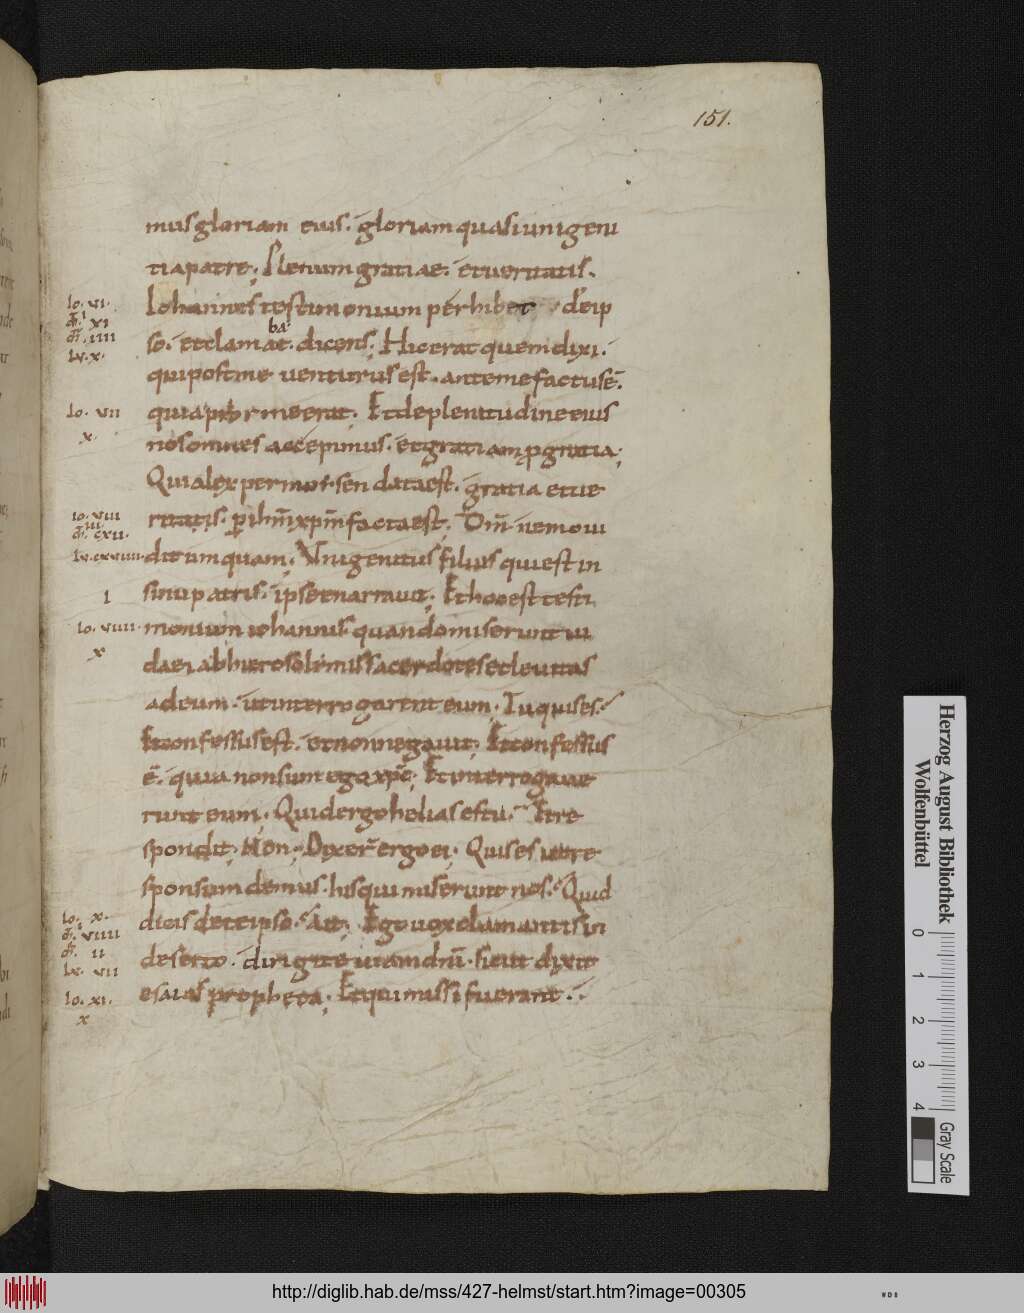 151.
mus gloriam eius. gloriam quasi unigeni
ti a patre; Plenum gratiae. et ueritatis.
Iohannes testimonium perhibet de ip
so. et clamat. dicens; Hic erat quem dixi.
ba
qui post me uenturus est. ante me factus ē.
quia prior me erat; Et de plenitudine eius
nos omnes accepimus. et gratiam p gratia;
Quia lex per moisen data est. gratia et ue
ritatis. p ihm xpm facta est; Dm nemo ui
dit umquam; Vnigenitus filius qui est in
sinu patris. ipse enarrauit; Et hoc est testi
monium iohannis. quando miserunt iu
daei ab hierosolimis sacerdotes et leuitas
ad eum. ut interrogarent eum; Tu quis es.
Et confessus est. et non negauit; Et confessus
ē. quia non sum ego xpc; Et interrogaue
runt eum; Quid ergo helias es tu. Et re
spondit; Non; Dixer ergo ei. Quis es ut re
sponsum demus. his qui miserunt nos. Quid
dicis de te ipso. Ait; Ego uox clamantis in
deserto. dirigite uiam dni. sicut dixit
esaias propheta; Et qui missi fuerant.
Io. VI.
XI
IIII
Lv. X.
Io. VII
X.
Io. VIII
III
CXII.
Lv. CXVIIII.
I
Io. VIIII.
X
Io. X.
I
VIIII
II
Lv. VII
Io. XI.
X
Herzog August Bibliothek
Wolfenbüttel
0 1 2 3 4
Gray Scale
http://diglib.hab.de/mss/427-helmst/start.htm?image=00305